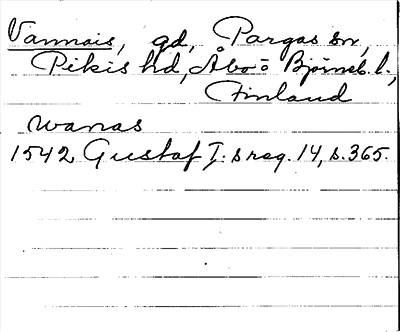 Vannais, gd, Pargas sn,
Pikis hd, Åbo o Björneb. l.,
Finland
Wanas
1542 Gustaf I:s reg. 14, s. 365.